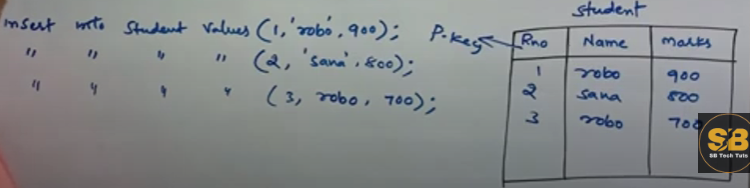 Student
insert into Student values (1, 'robo', 900);
" " " " (2, 'sana', 800);
" " " " (3, robo, 700);
P.key
Rno Name marks
1 robo 900
2 sana 800
3 robo 700
SB
SB Tech Tuts